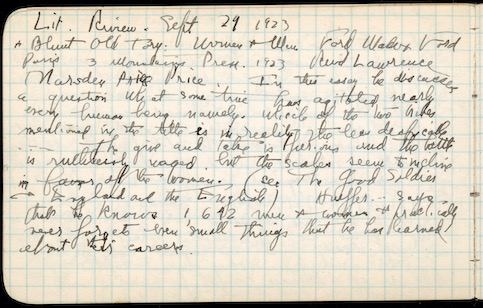 Lit. Review. Sept 29 1923
A Blunt Old Tory. Women & Men Ford Madox Ford
Paris 3 Mountains Press. 1923 Lawrence
Marsden Price Price. In this essay he discusses
a question that at some time has agitated nearly
every human being namely. which of the two
mentioned in the title is in reality the less
.... The give and take is furious and the battle
is ruthlessly waged but the scales seem to incline
in favor of the women. (see The Good Soldier
England and the English) Hueffer... says
that he knows 1,642 men & women & practically
never forgets even small things that he has learned
about their careers.